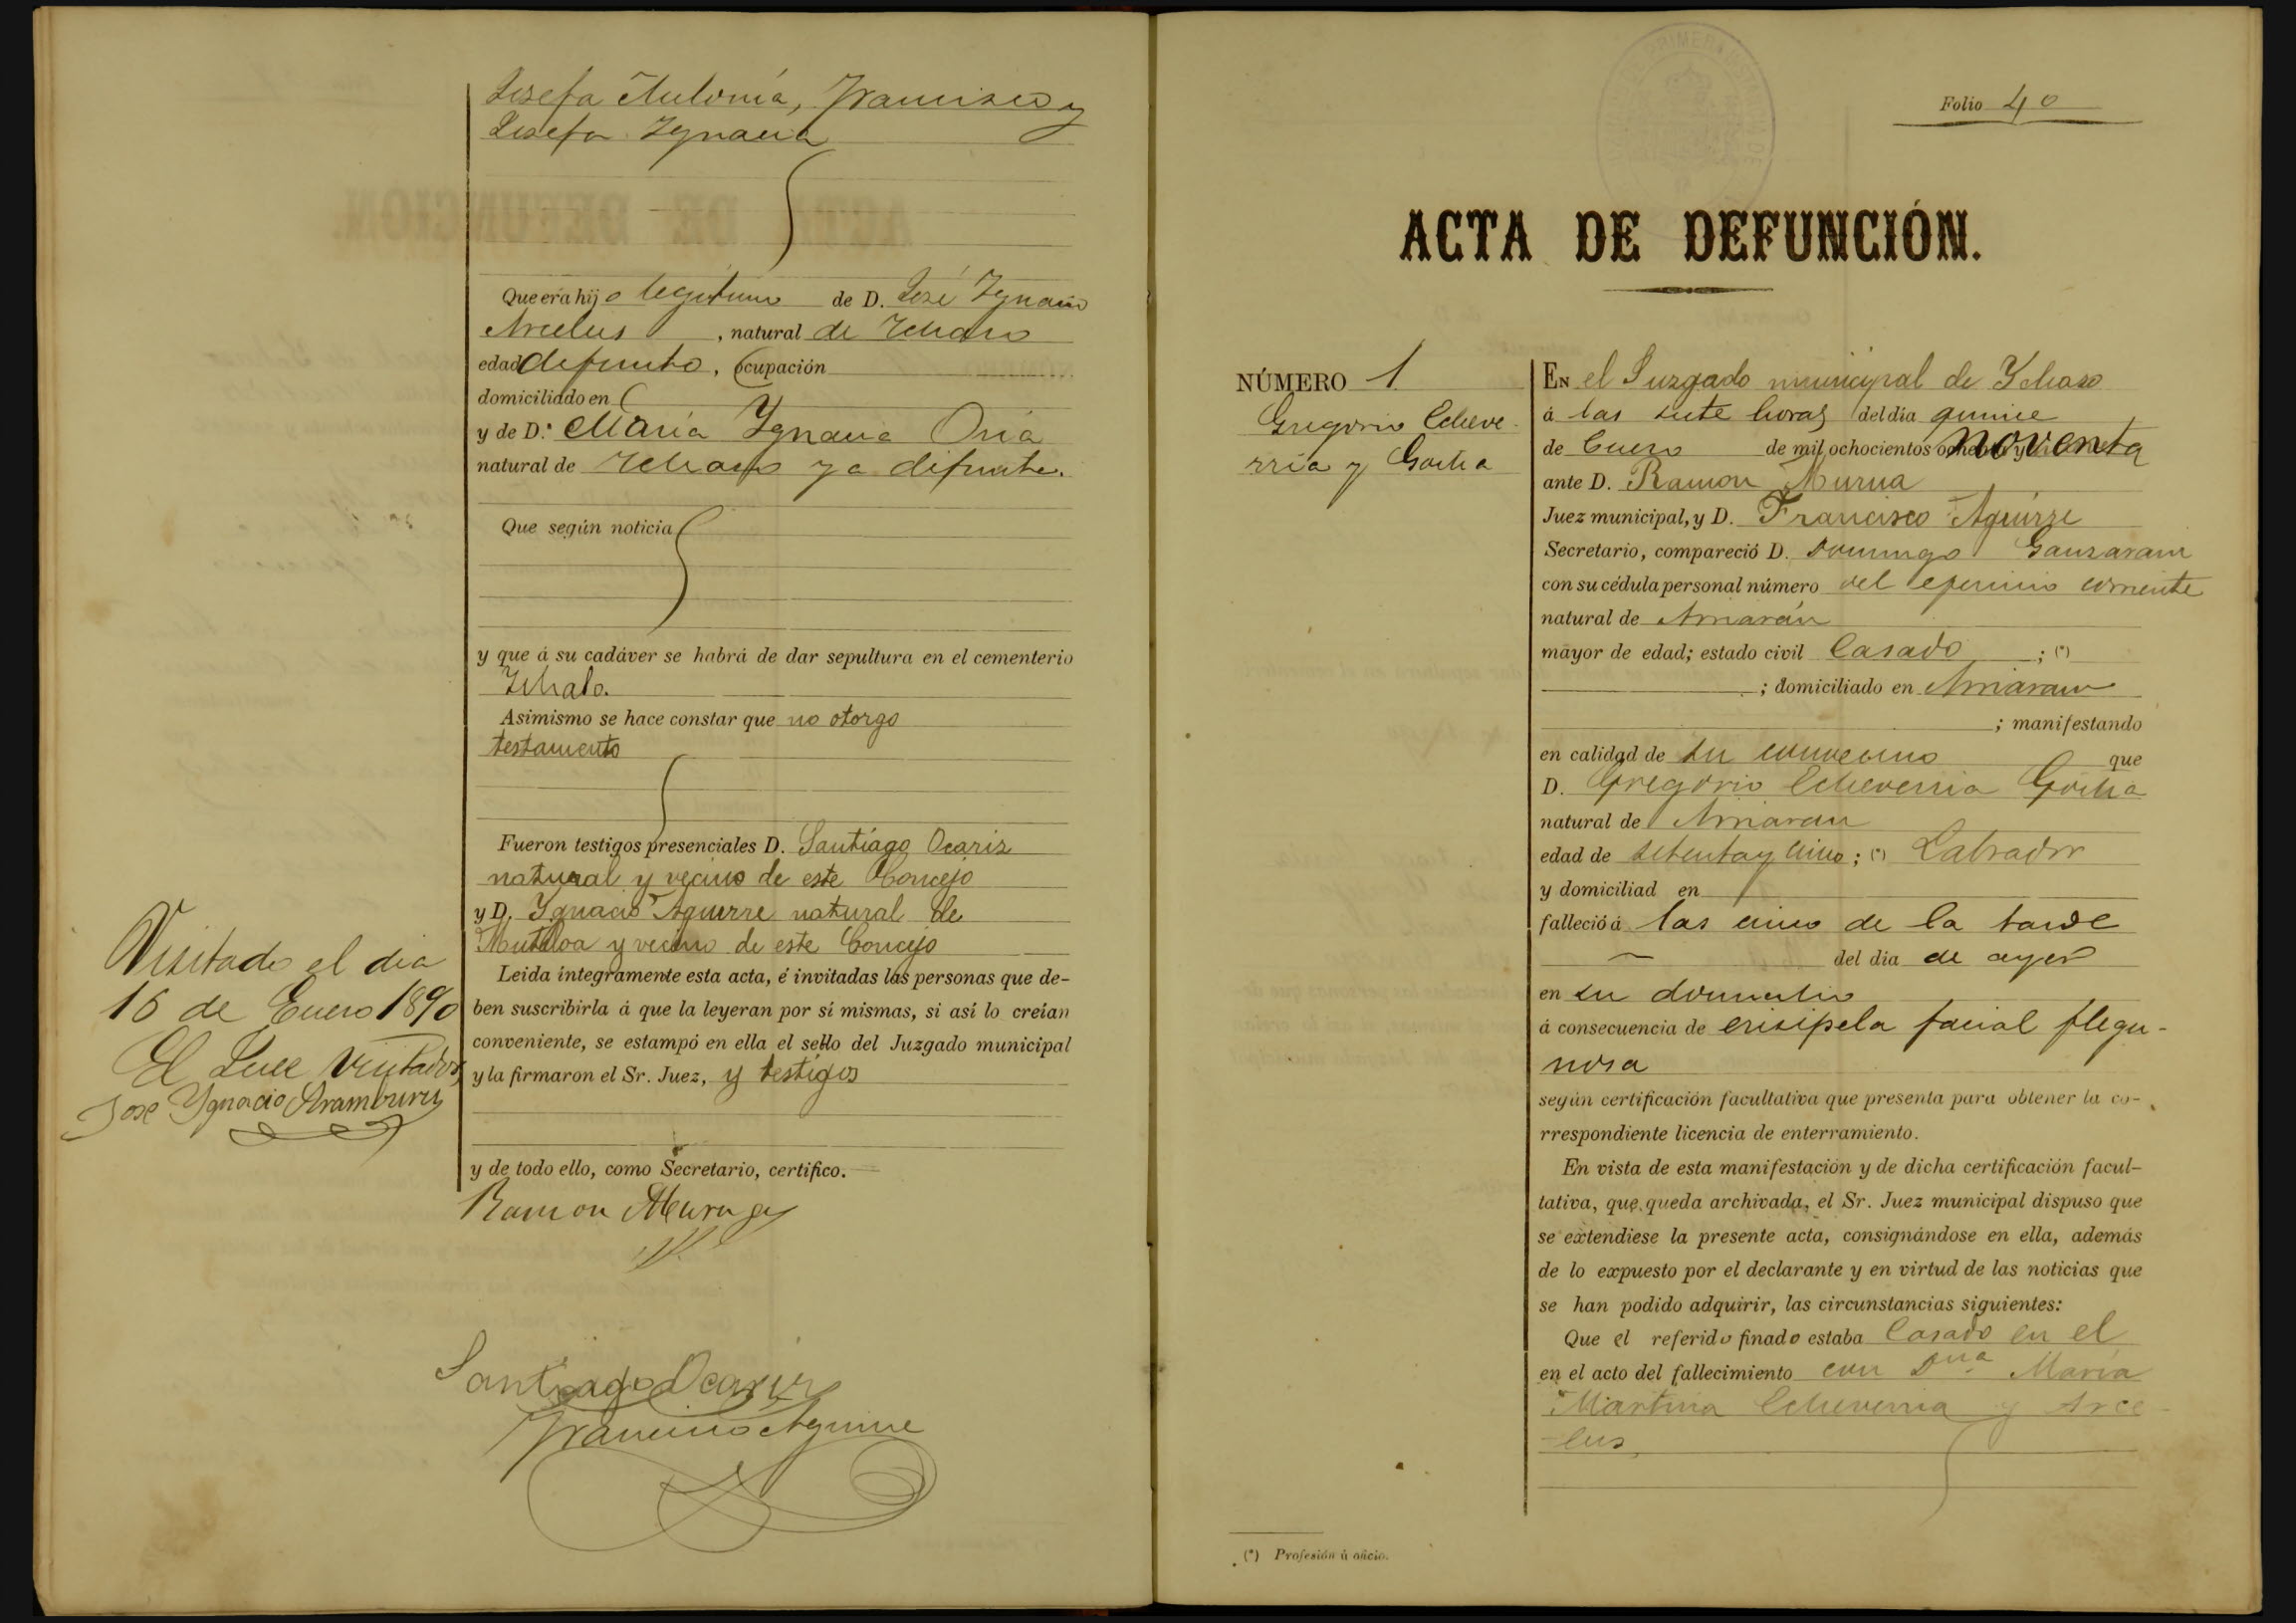 Josefa Antonia, Francisco y
Josefa Ygnacia
Que era hijo legitimo de D. José Ygnacio
Arcelus, natural de Ichaso
edad defunto, ocupación
domiciliado en
y de D.ª María Ygnacia Oria
natural de Ichaso ya difunta.
Que según noticia
y que á su cadáver se habrá de dar sepultura en el cementerio
Ichaso.
Asimismo se hace constar que no otorgo
testamento
Fueron testigos presenciales D. Santiago Ocariz
natural y vecino de este Concejo
y D. Ygnacio Aguirre natural de
Mutiloa y vecino de este Concejo
Leida íntegramente esta acta, é invitadas las personas que de-
ben suscribirla á que la leyeran por sí mismas, si así lo creían
conveniente, se estampó en ella el sello del Juzgado municipal
y la firmaron el Sr. Juez, y testigos
y de todo ello, como Secretario, certifico.
Ramon Murua
Santiago Ocariz
Francisco Aguirre
Visitado el dia
16 de Enero 1890
El Juez Visitador
Jose Ygnacio Aramburu
Folio 40
ACTA DE DEFUNCIÓN.
NÚMERO 1
Gregorio Echeve-
rria y Goitia
EN el Juzgado municipal de Ychaso
á las siete horas del día quince
de Enero de mil ochocientos noventa
ante D. Ramon Murua
Juez municipal, y D. Francisco Aguirre
Secretario, compareció D. Domingo Ganzarain
con su cédula personal número del ejercicio corriente
natural de Arriarán
mayor de edad; estado civil Casado; (*)
; domiciliado en Arriaran
; manifestando
en calidad de su convecino que
D. Gregorio Echeverria Goitia
natural de Arriaran
edad de setenta y cinco; (*) Labrador
y domiciliad en
falleció á las cinco de la tarde
del día de ayer
en su domicilio
á consecuencia de erisipela facial flegu-
nosa
según certificación facultativa que presenta para obtener la co-
rrespondiente licencia de enterramiento.
En vista de esta manifestación y de dicha certificación facul-
tativa, que queda archivada, el Sr. Juez municipal dispuso que
se extendiese la presente acta, consignándose en ella, además
de lo expuesto por el declarante y en virtud de las noticias que
se han podido adquirir, las circunstancias siguientes:
Que el referido finado estaba Casado en el
en el acto del fallecimiento con Dna. María
Martina Echeverria y Arce-
lus,
(*) Profesión ú oficio.